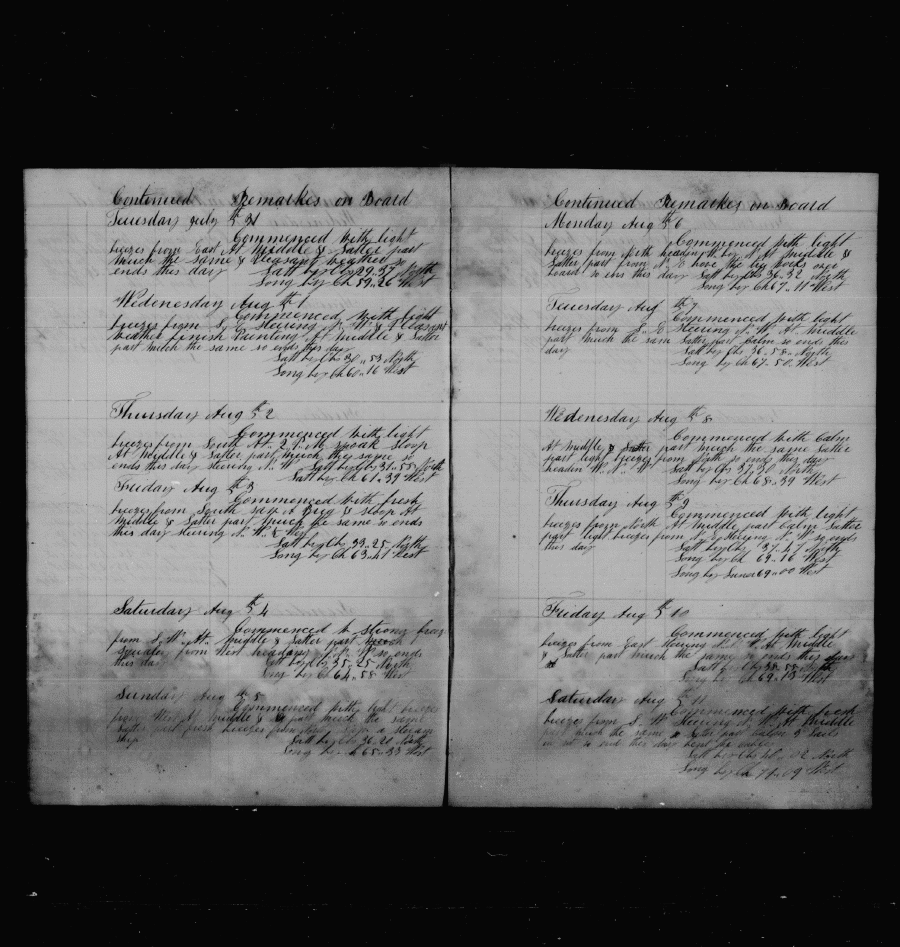 Continued Remarkes on Board
Teuesday july th 31
Commenced with light
breezes from East At Middle & Latter part
much the same & pleasant weather so
ends this day Latt by Obs 29..37 North
Long by Ch 59..26 West
Wednesday Aug th 1
Commenced with light
breezes from S. E Steering N. W & Pleasant
weather finish Painting At middle & Latter
part much the same so ends this day
Latt by Obs 30..53 North
Long by Ch 60..16 West
Thursday Aug th 2
Commenced with light
breezes from South At 2 P. M Speak Sloop
At Middle & Latter part much the same so
ends this day steering N. W Latt by Obs 31..55 North
Long by Ch 61..39 West
Friday Aug th 3
Commenced with fresh
breezes from South saw A Brig & Sloop At
Middle & Latter part much the same so ends
this day steering N. W. & West
Latt by Obs 33..25 North
Long by Ch 63..41 West
Saturday Aug th 4
Commenced strong breez
from S. W. At Middle & Latter part
Squales from West heading so ends
this day Latt by Obs 35..25 North
Long by Ch 64..58 West
Sunday Aug th 5
Commenced with light breezes
from West At Middle & part much the same
Latter part fresh breezes from a Steam
ship Latt by Obs 36..21 North
Long by Ch 65..33 West
Continued Remarkes on Board
Monday Aug th 6
Commenced with light
breezes from North heading At Middle &
Latter part from N. E
board so ends this day Latt by Obs 36..32 North
Long by Ch 67..11 West
Teuesday Aug th 7
Commenced with light
breezes from S. E Steering N. W At Middle
part much the same Latter part Calm so ends this
day Latt by Obs 36..58 North
Long by Ch 67..50 West
Wednesday Aug th 8
Commenced with Calm
At middle & Latter part much the same Latter
part light breezes from North so ends this day
headen W. N. W Latt by Obs 37..30 North
Long by Ch 68..39 West
Thursday Aug th 9
Commenced with light
breezes from North At Middle part Calm Latter
part light breezes from Steering N. W so ends
this day Latt by Obs 37..47 North
Long by Ch 69..16 West
Long by 69..00 West
Friday Aug th 10
Commenced with light
breezes from East Steering At Middle
& Latter part much the same so ends this
Latt by Obs 38..55 North
Long by Ch 69..13 West
Saturday Aug th 11
Commenced with fresh
breezes from S. W Steering N. W. At Middle
part much the same Latter part Calm 3 Sails
in so ends this day
Latt by Obs North
Long by Ch 71..09 West